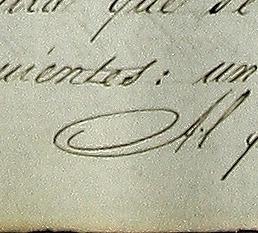 que se
uientes: un
Al y